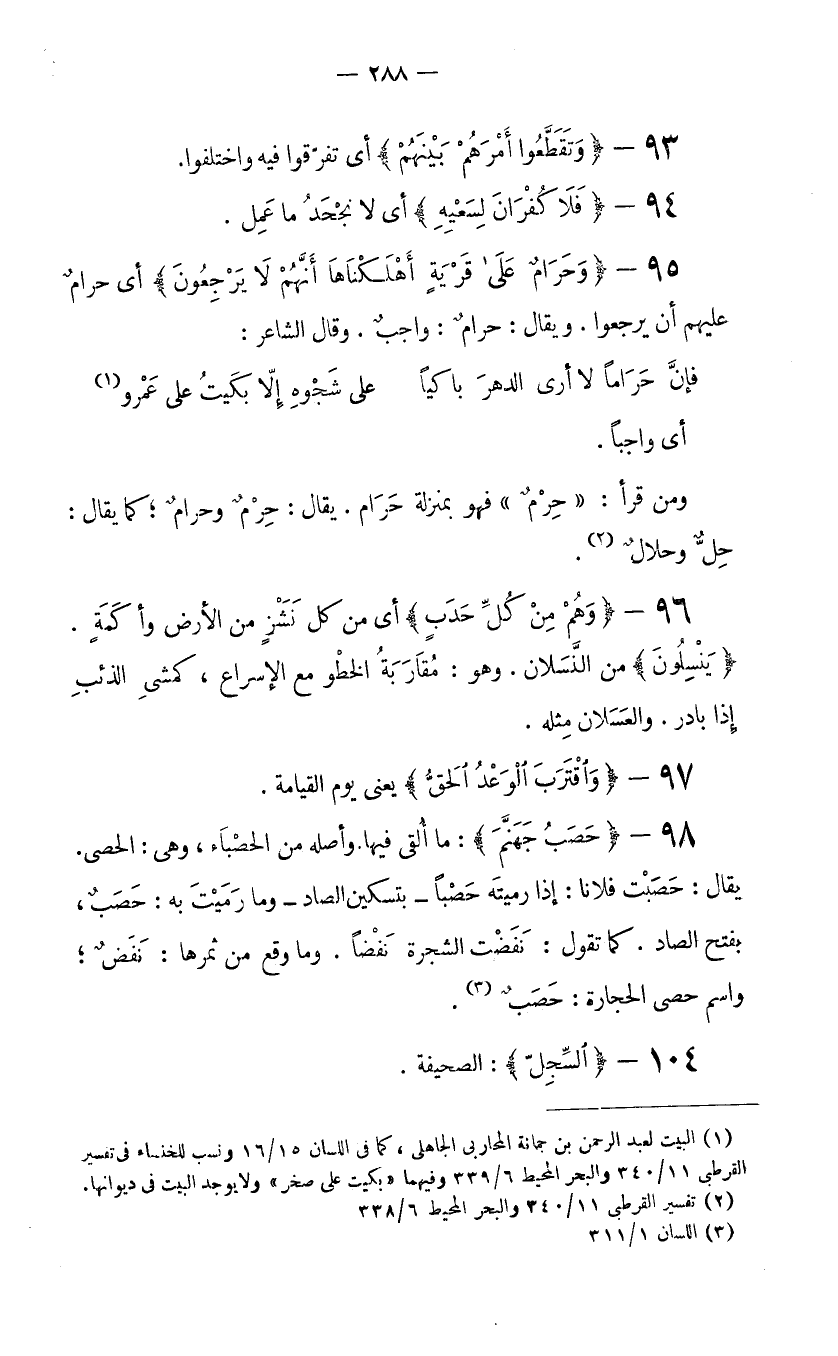 — ٢٨٨ —
٩٣ — ﴿ وَتَقَطَّعُوا أَمْرَهُمْ بَيْنَهُمْ ﴾ أى تفرّقوا فيه واختلفوا.
٩٤ — ﴿ فَلَا كُفْرَانَ لِسَعْيِهِ ﴾ أى لا نجْحَدُ ما عَمِل .
٩٥ — ﴿ وَحَرَامٌ عَلَىٰ قَرْيَةٍ أَهْلَكْنَاهَا أَنَّهُمْ لَا يَرْجِعُونَ ﴾ أى حرامٌ
عليهم أن يرجعوا . ويقال : حرامٌ : واجبٌ . وقال الشاعر :
فإنَّ حَرَاماً لا أرى الدهرَ باكياً على شَجْوِهِ إلّا بكَيتُ على عَمْرو(١)
أى واجباً .
ومن قرأ : « حِرْمٌ » فهو بمنزلة حَرَام . يقال : حِرْمٌ وحرامٌ ؛ كما يقال :
حِلٌّ وحلالٌ (٢) .
٩٦ — ﴿ وَهُمْ مِنْ كُلِّ حَدَبٍ ﴾ أى من كل نَشْزٍ من الأرض وأكَمَةٍ .
﴿ يَنْسِلُونَ ﴾ من النَّسَلان . وهو : مُقَارَبَةُ الخطْو مع الإسراع ، كمشىِ الذئبِ
إذا بادر . والعَسَلان مِثله .
٩٧ — ﴿ وَٱقْتَرَبَ ٱلْوَعْدُ ٱلْحَقُّ ﴾ يعنى يوم القيامة .
٩٨ — ﴿ حَصَبُ جَهَنَّمَ ﴾ : ما أُلقى فيها. وأصله من الحصْبَاء ، وهى : الحصى.
يقال : حَصَبْت فلانا : إذا رميتَه حَصْباً ــ بتسكين الصاد ــ وما رَمَيْتَ به : حَصَبٌ ،
بفتح الصاد . كما تقول : نَفَضْت الشجرة نَفْضاً . وما وقع من ثمرها : نَفَضٌ ؛
واسم حصى الحجارة : حَصَبٌ (٣) .
١٠٤ — ﴿ ٱلسِّجِلّ ﴾ : الصحيفة .
(١) البيت لعبد الرحمن بن جمانة المحاربى الجاهلى ، كما فى اللسان ١٦/١٥ ونسب للخنساء فى تفسير
القرطبى ٣٤٠/١١ والبحر المحيط ٣٣٩/٦ وفيهما « بكيت على صخر » ولا يوجد البيت فى ديوانها.
(٢) تفسير القرطبى ٣٤٠/١١ والبحر المحيط ٣٣٨/٦
(٣) اللسان ٣١١/١